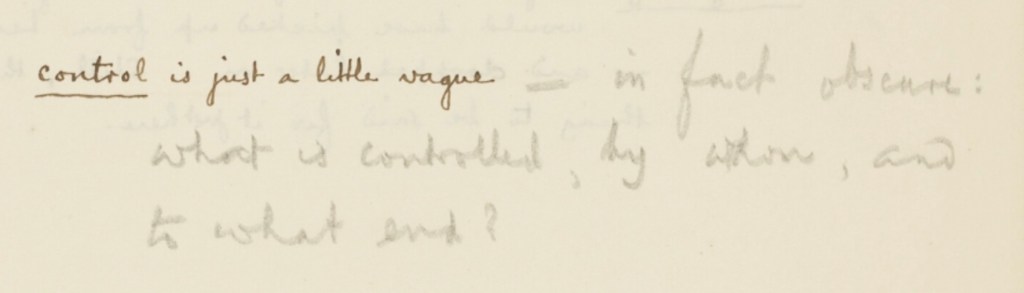 control is just a little vague = in fact obscure:
what is controlled, by whom, and
to what end?